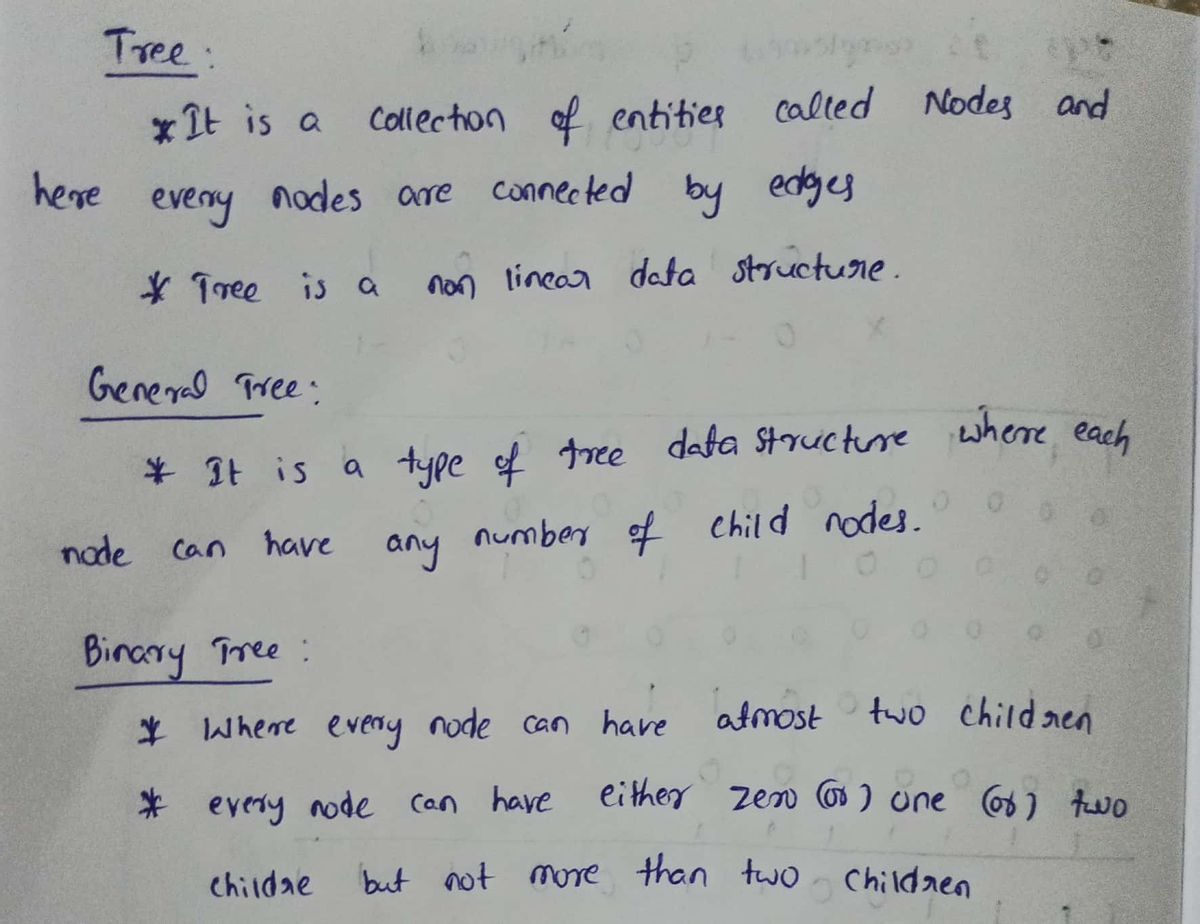 Tree :
* It is a collection of entities called Nodes and
here every nodes are connected by edges
* Tree is a non linear data structure.
General Tree :
* It is a type of tree data structure where each
node can have any number of child nodes.
Binary Tree :
* Where every node can have atmost two children
* every node can have either zero (or) one (or) two
childre but not more than two children